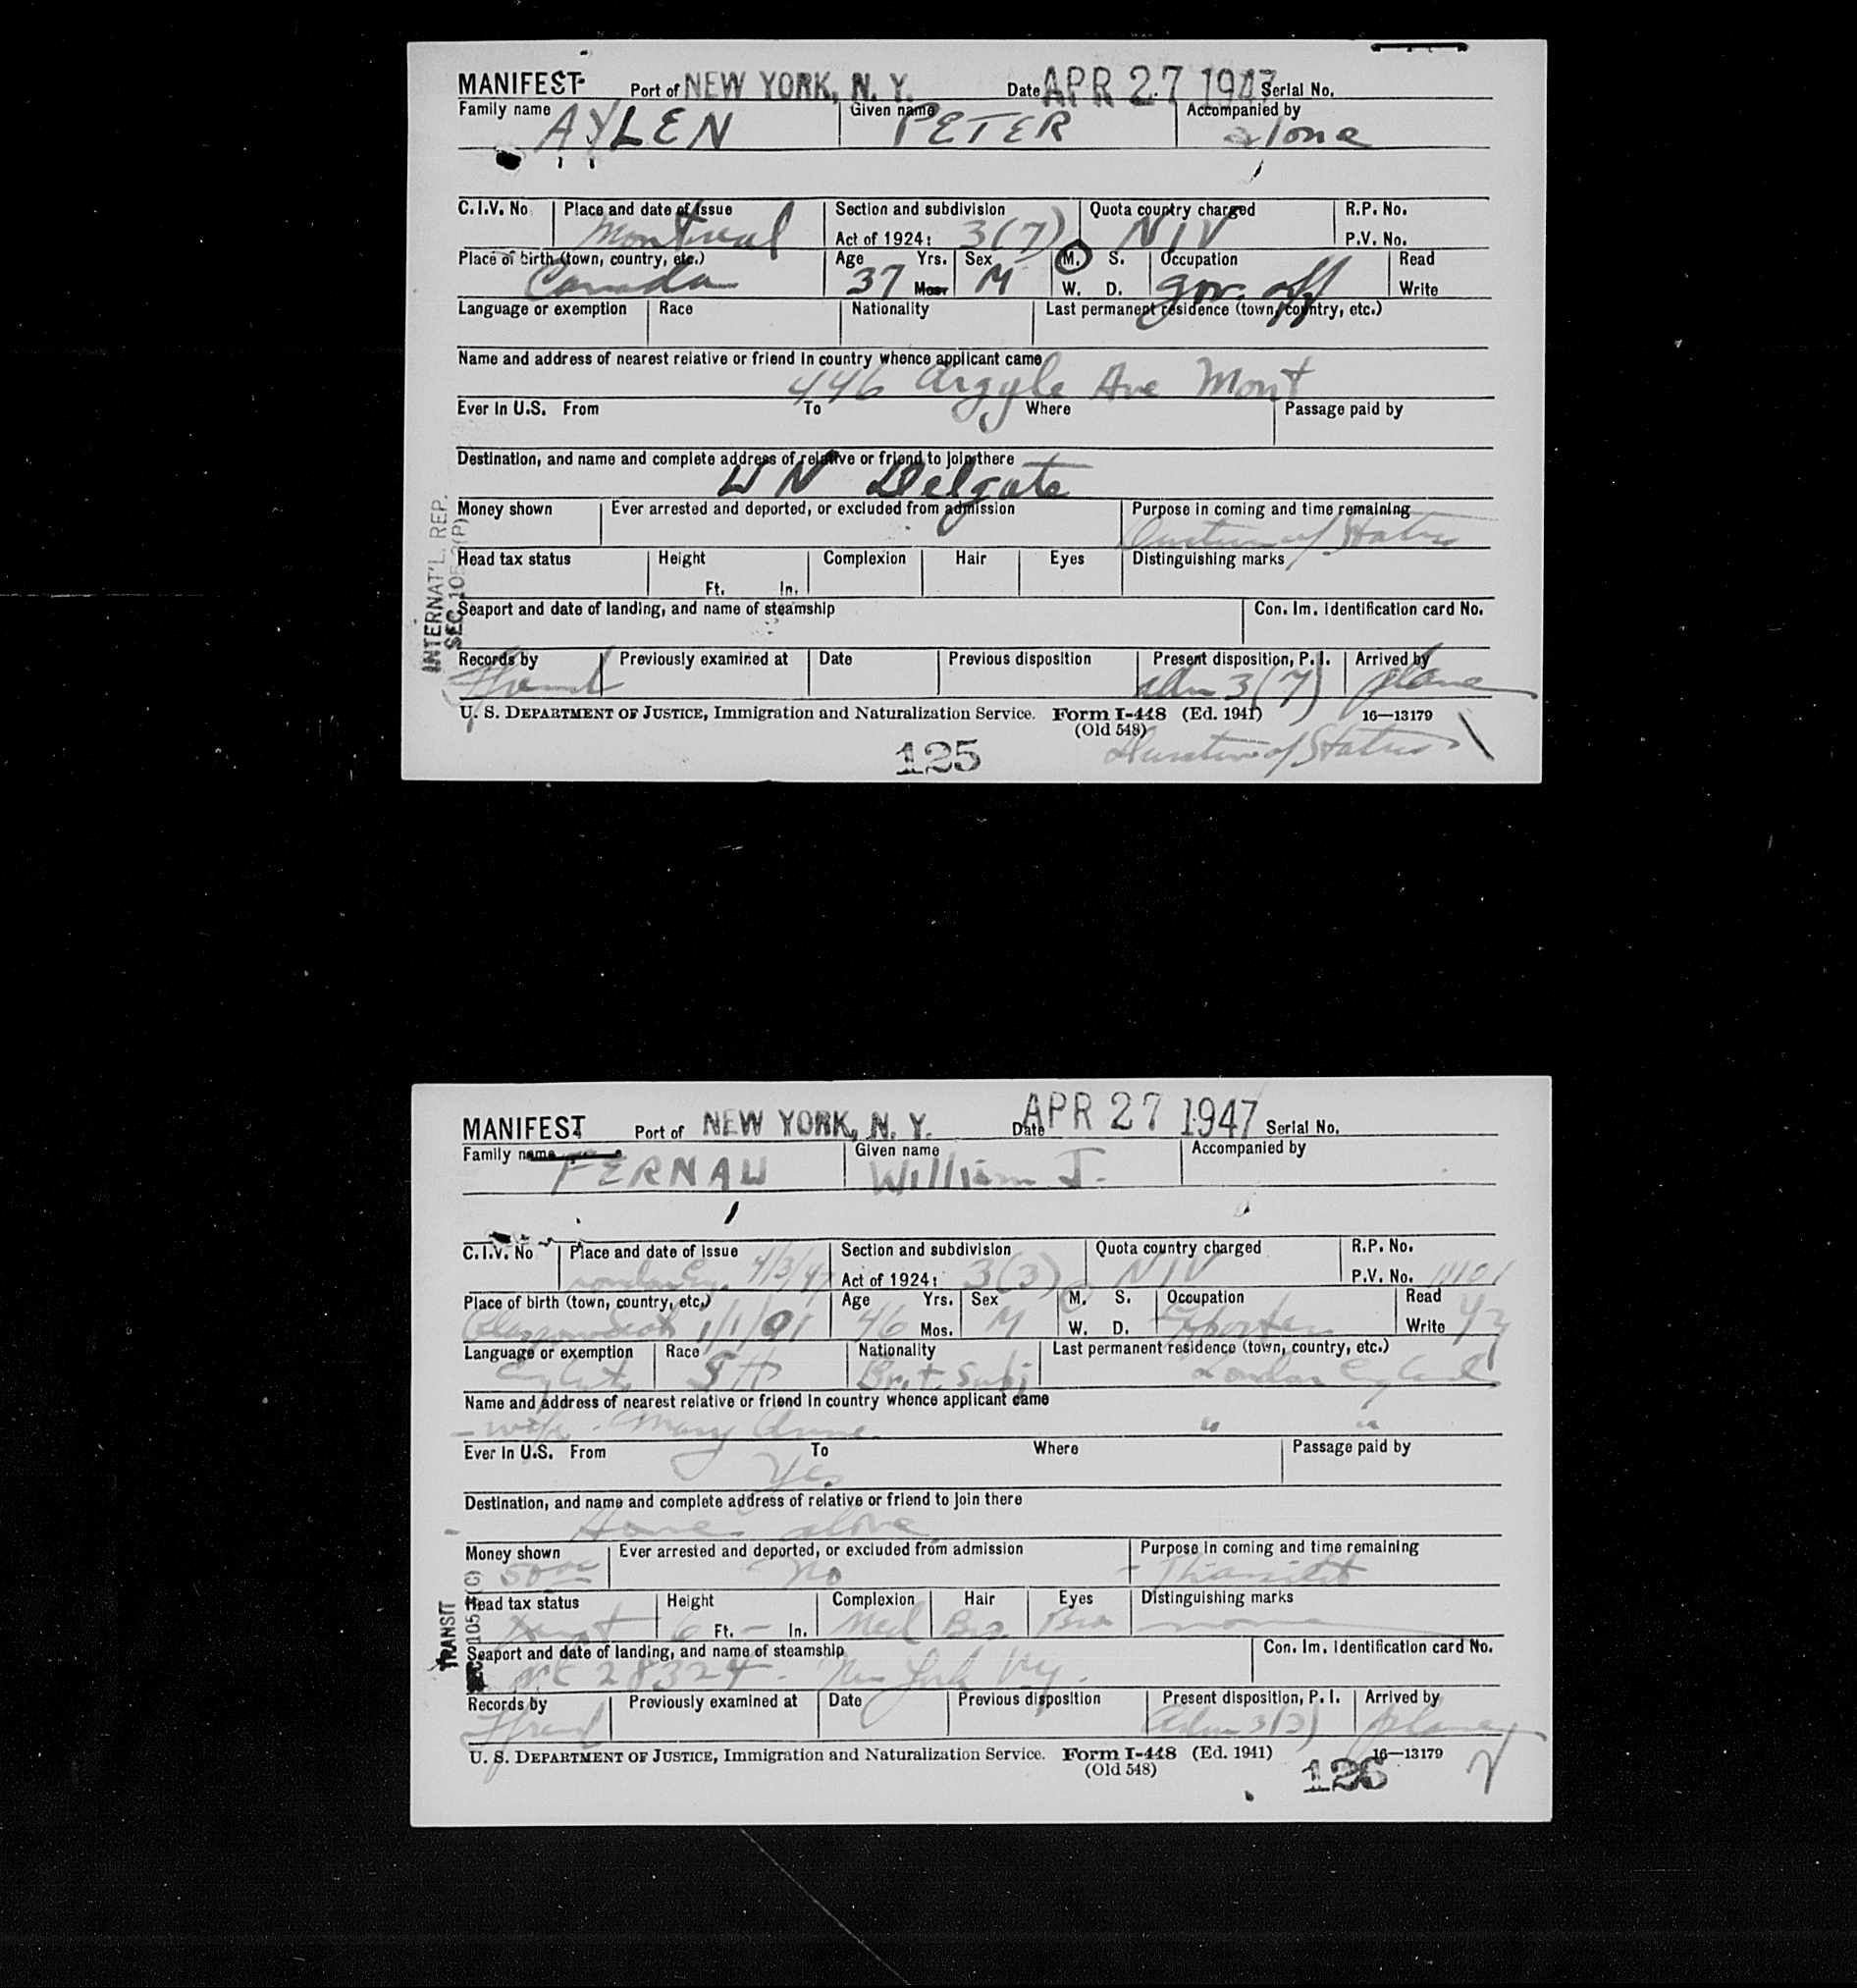 MANIFEST Port of NEW YORK, N. Y. Date APR 27 1947 Serial No.
Family name AYLEN Given name PETER Accompanied by alone
C.I.V. No Place and date of issue Montreal Section and subdivision Act of 1924: 3(7) Quota country charged NIV R.P. No. P.V. No.
Place of birth (town, country, etc.) Canada Age 37 Yrs. Mos. Sex M M. S. W. D. Occupation gov. off Read Write
Language or exemption Race Nationality Last permanent residence (town, country, etc.)
Name and address of nearest relative or friend in country whence applicant came
446 Argyle Ave Mont
Ever in U.S. From To Where Passage paid by
Destination, and name and complete address of relative or friend to join there
UN Delgate
Money shown Ever arrested and deported, or excluded from admission Purpose in coming and time remaining
Duration of Status
Head tax status Height Ft. In. Complexion Hair Eyes Distinguishing marks
Seaport and date of landing, and name of steamship Con. Im. Identification card No.
Records by Previously examined at Date Previous disposition Present disposition, P. I. Adm 3(7) Arrived by plane
U. S. DEPARTMENT OF JUSTICE, Immigration and Naturalization Service. Form I-448 (Ed. 1941) 16—13179
(Old 548)
Duration of Status
125
INTERNAT'L. REP.
SEC. 105
MANIFEST Port of NEW YORK, N. Y. Date APR 27 1947 Serial No.
Family name FERNAU Given name William J. Accompanied by
C.I.V. No Place and date of issue London Eng. 4/3/47 Section and subdivision Act of 1924: 3(3) Quota country charged NIV R.P. No. P.V. No.
Place of birth (town, country, etc.) Glasgow Scot 1/1/01 Age 46 Yrs. Mos. Sex M M. S. W. D. Occupation Exporter Read Write
Language or exemption Race Nationality Brit. Subj Last permanent residence (town, country, etc.) London England
Name and address of nearest relative or friend in country whence applicant came
- wife - Mary Anne " "
Ever in U.S. From To Where Passage paid by
Yes
Destination, and name and complete address of relative or friend to join there
alone
Money shown 50 00 Ever arrested and deported, or excluded from admission No Purpose in coming and time remaining - Transit
Head tax status Height 6 Ft. - In. Complexion Med Hair Bro Eyes Bro Distinguishing marks none
Seaport and date of landing, and name of steamship 28324 - New York Ny. Con. Im. Identification card No.
Records by Previously examined at Date Previous disposition Present disposition, P. I. Adm 3(3) Arrived by plane
U. S. DEPARTMENT OF JUSTICE, Immigration and Naturalization Service. Form I-448 (Ed. 1941) 16—13179
(Old 548)
126
TRANSIT
SEC 105 (C)